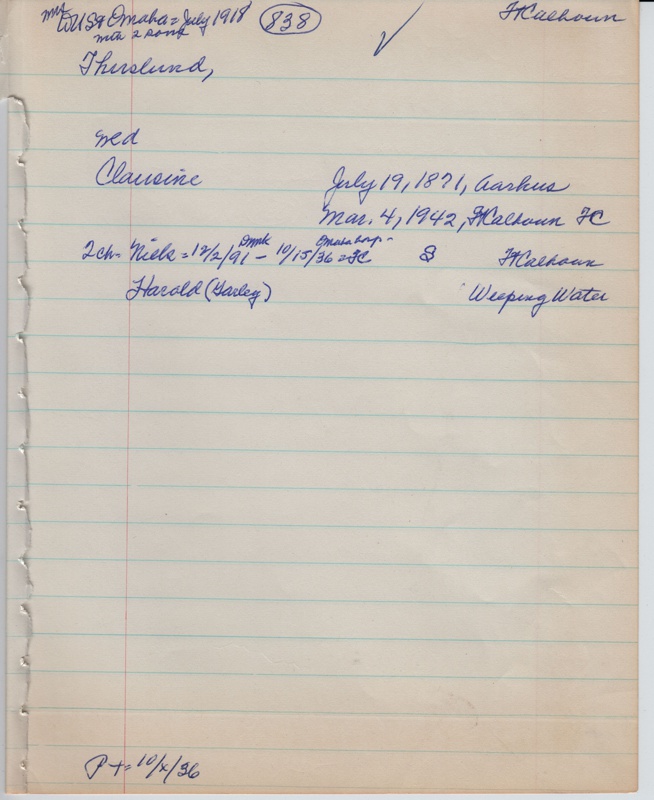 WUSA Omaha = July 1918 838 FtCalhoun
mo & 2 sons
Thorslund,
md
Clausine July 19, 1871, Aarhus
Mar. 4, 1942, FtCalhoun FC
Dnmk Omaha hosp-
2 ch = Niels = 12/2/91 — 10/15/36 = FC S FtCalhoun
Harold (Harley) Weeping Water
P += 10/x/36